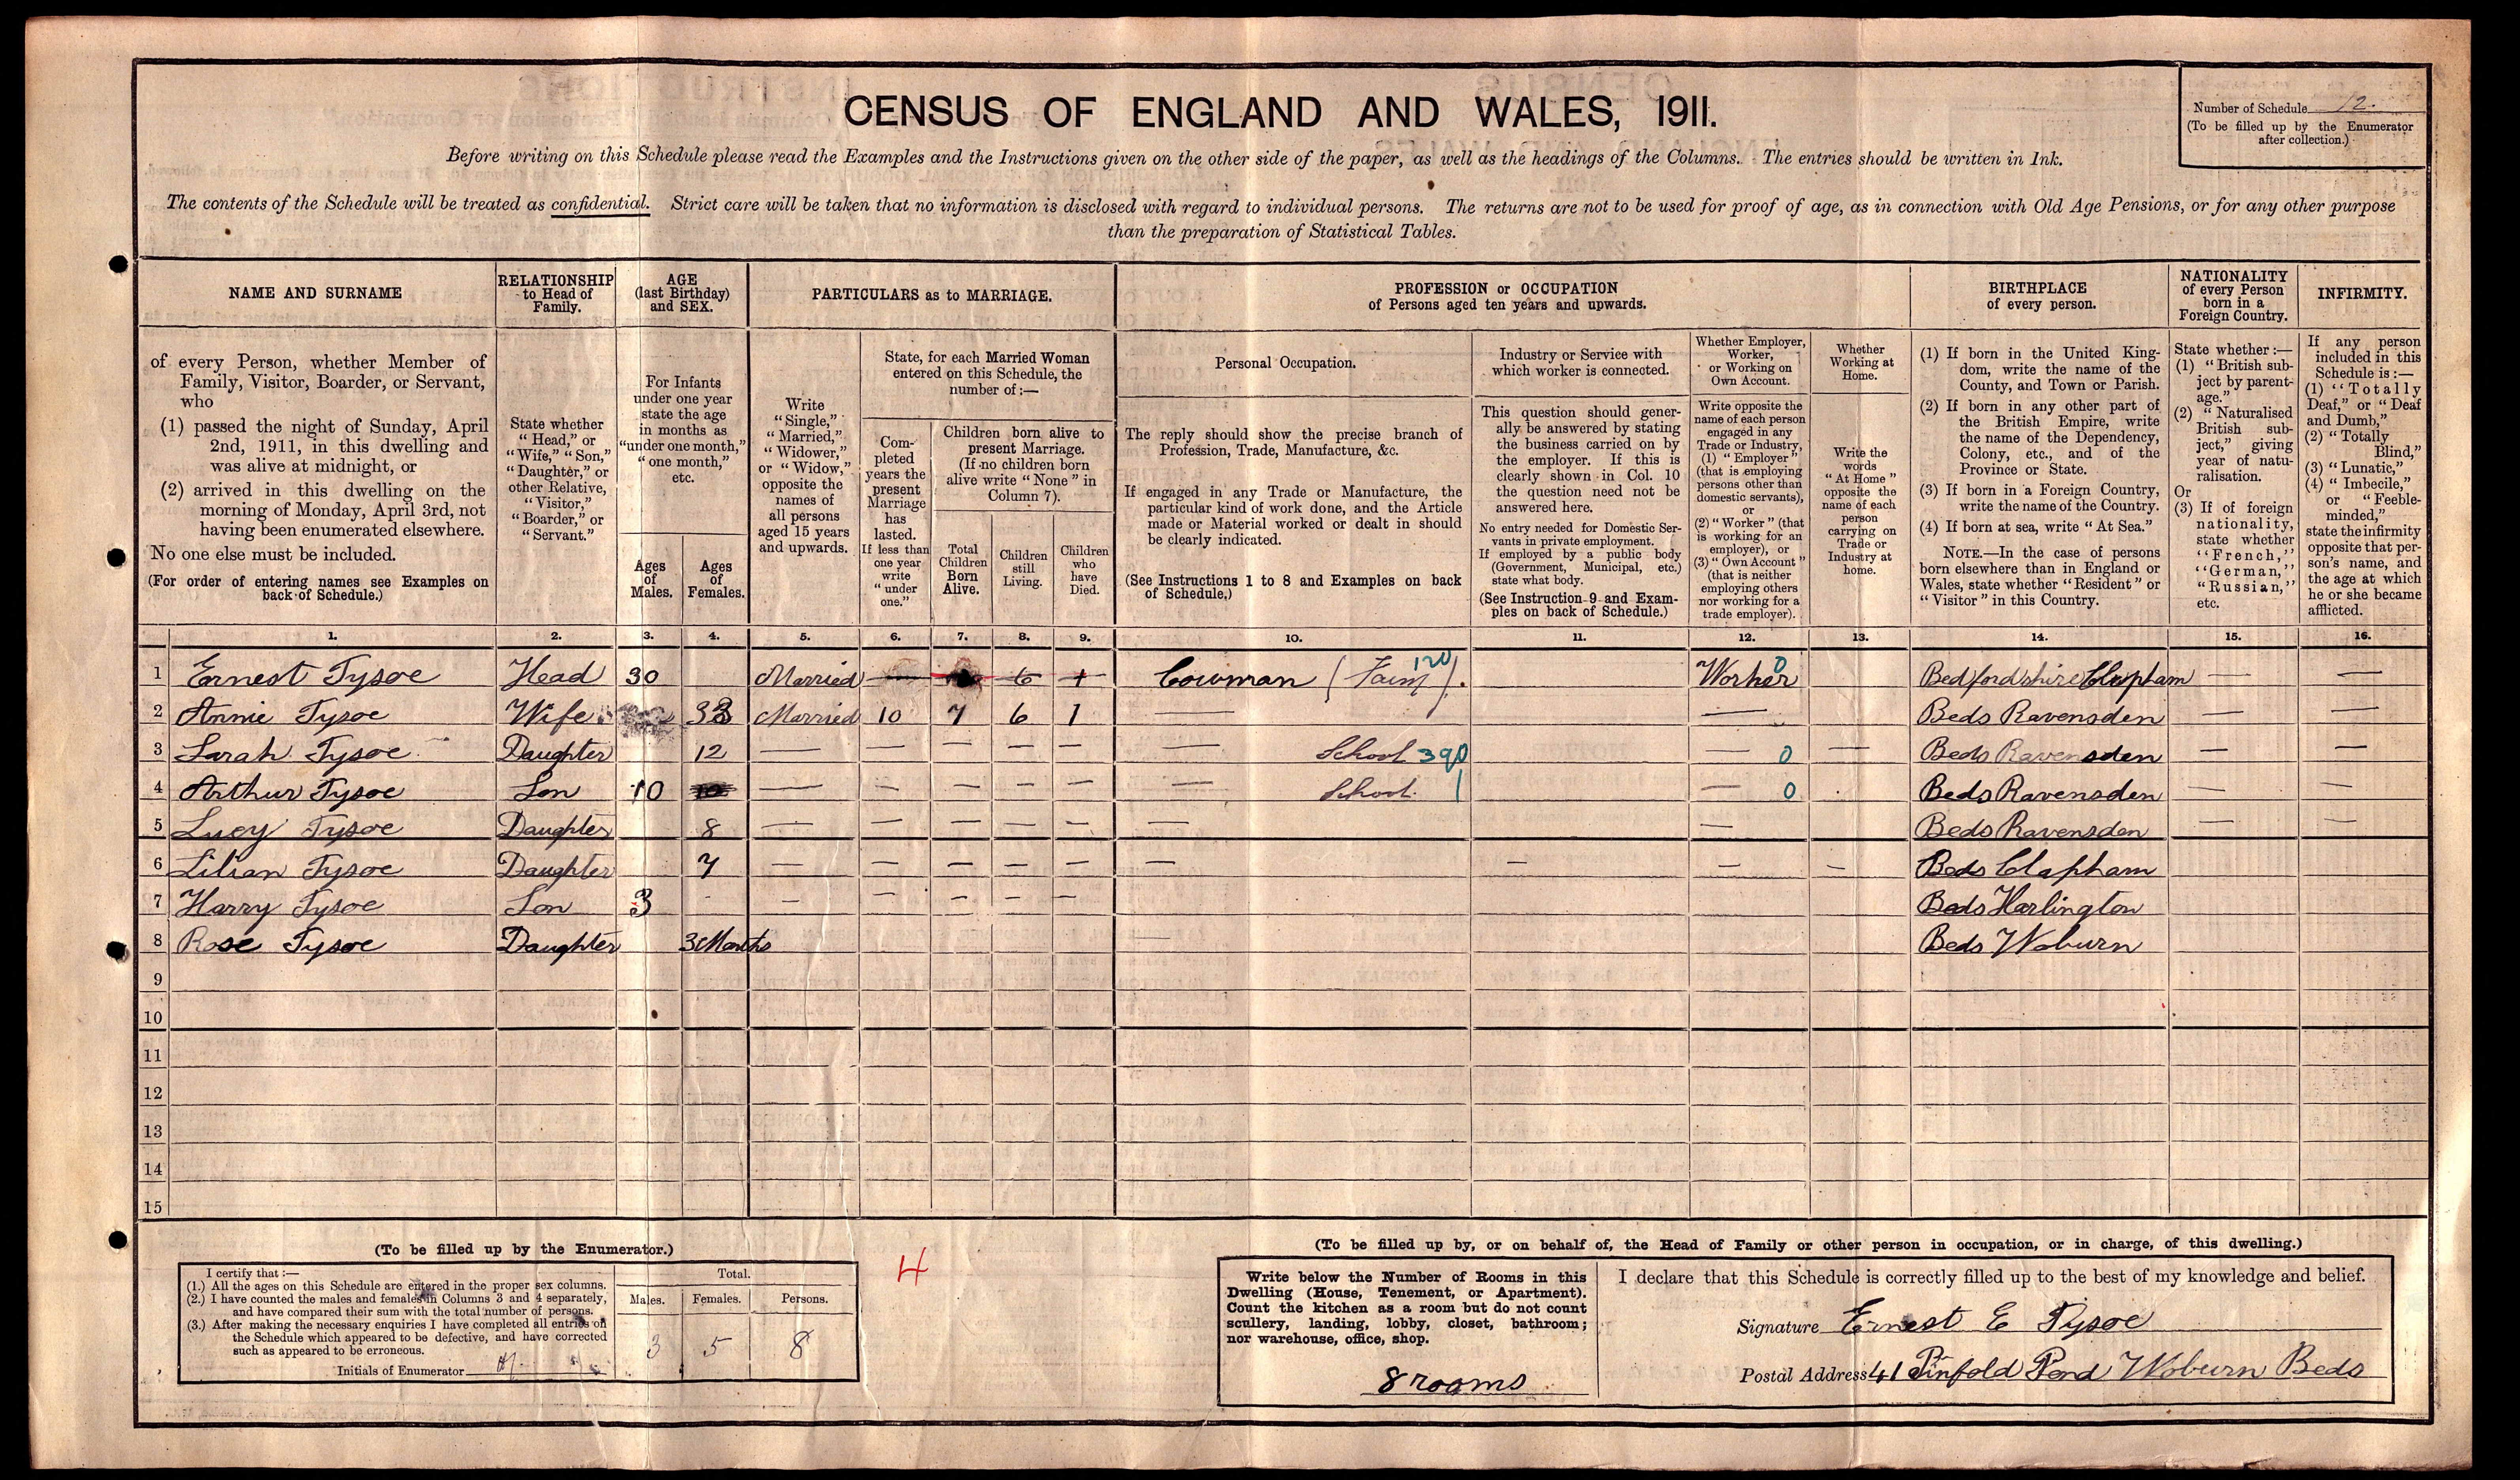 CENSUS OF ENGLAND AND WALES, 1911.
Number of Schedule 12.
(To be filled up by the Enumerator
after collection.)
Before writing on this Schedule please read the Examples and the Instructions given on the other side of the paper, as well as the headings of the Columns. The entries should be written in Ink.
The contents of the Schedule will be treated as confidential. Strict care will be taken that no information is disclosed with regard to individual persons. The returns are not to be used for proof of age, as in connection with Old Age Pensions, or for any other purpose
than the preparation of Statistical Tables.
NAME AND SURNAME
of every Person, whether Member of
Family, Visitor, Boarder, or Servant,
who
(1) passed the night of Sunday, April
2nd, 1911, in this dwelling and
was alive at midnight, or
(2) arrived in this dwelling on the
morning of Monday, April 3rd, not
having been enumerated elsewhere.
No one else must be included.
(For order of entering names see Examples on
back of Schedule.)
RELATIONSHIP
to Head of
Family.
State whether
"Head," or
"Wife," "Son,"
"Daughter," or
other Relative,
"Visitor,"
"Boarder," or
"Servant."
AGE
(last Birthday)
and SEX.
For Infants
under one year
state the age
in months as
"under one month,"
"one month,"
etc.
Ages
of
Males.
Ages
of
Females.
PARTICULARS as to MARRIAGE.
Write
"Single,"
"Married,"
"Widower,"
or "Widow,"
opposite the
names of
all persons
aged 15 years
and upwards.
State, for each Married Woman
entered on this Schedule, the
number of:—
Com-
pleted
years the
present
Marriage
has
lasted.
If less than
one year
write
"under
one."
Children born alive to
present Marriage.
(If no children born
alive write "None" in
Column 7).
Total
Children
Born
Alive.
Children
still
Living.
Children
who
have
Died.
PROFESSION or OCCUPATION
of Persons aged ten years and upwards.
Personal Occupation.
The reply should show the precise branch of
Profession, Trade, Manufacture, &c.
If engaged in any Trade or Manufacture, the
particular kind of work done, and the Article
made or Material worked or dealt in should
be clearly indicated.
(See Instructions 1 to 8 and Examples on back
of Schedule.)
Industry or Service with
which worker is connected.
This question should gener-
ally be answered by stating
the business carried on by
the employer. If this is
clearly shown in Col. 10
the question need not be
answered here.
No entry needed for Domestic Ser-
vants in private employment.
If employed by a public body
(Government, Municipal, etc.)
state what body.
(See Instruction 9 and Exam-
ples on back of Schedule.)
Whether Employer,
Worker,
or Working on
Own Account.
Write opposite the
name of each person
engaged in any
Trade or Industry,
(1) "Employer"
(that is employing
persons other than
domestic servants),
or
(2) "Worker" (that
is working for an
employer), or
(3) "Own Account"
(that is neither
employing others
nor working for a
trade employer).
Whether
Working at
Home.
Write the
words
"At Home"
opposite the
name of each
person
carrying on
Trade or
Industry at
home.
BIRTHPLACE
of every person.
(1) If born in the United King-
dom, write the name of the
County, and Town or Parish.
(2) If born in any other part of
the British Empire, write
the name of the Dependency,
Colony, etc., and of the
Province or State.
(3) If born in a Foreign Country,
write the name of the Country.
(4) If born at sea, write "At Sea."
NOTE.—In the case of persons
born elsewhere than in England or
Wales, state whether "Resident" or
"Visitor" in this Country.
NATIONALITY
of every Person
born in a
Foreign Country.
State whether:—
(1) "British sub-
ject by parent-
age."
(2) "Naturalised
British sub-
ject," giving
year of natu-
ralisation.
Or
(3) If of foreign
nationality,
state whether
"French,"
"German,"
"Russian,"
etc.
INFIRMITY.
If any person
included in this
Schedule is:—
(1) "Totally
Deaf," or "Deaf
and Dumb,"
(2) "Totally
Blind,"
(3) "Lunatic,"
(4) "Imbecile,"
or "Feeble-
minded,"
state the infirmity
opposite that per-
son's name, and
the age at which
he or she became
afflicted.
1. 2. 3. 4. 5. 6. 7. 8. 9. 10. 11. 12. 13. 14. 15. 16.
1 Ernest Tysoe Head 30 Married — 6 1 Cowman (Farm). 120 Worker 0 Bedfordshire Clapham — —
2 Annie Tysoe Wife 33 Married 10 7 6 1 — — Beds Ravensden — —
3 Sarah Tysoe Daughter 12 — — — — — — School 390 — 0 — Beds Ravensden — —
4 Arthur Tysoe Son 10 — — — — — — School. 1 — 0 Beds Ravensden — —
5 Lucy Tysoe Daughter 8 — — — — — — — Beds Ravensden — —
6 Lilian Tysoe Daughter 7 — — — — — — — — — Beds Clapham
7 Harry Tysoe Son 3 - — — — — — Beds Harlington
8 Rose Tysoe Daughter 3 Months — Beds Woburn
9
10
11
12
13
14
15
(To be filled up by the Enumerator.)
I certify that:—
(1.) All the ages on this Schedule are entered in the proper sex columns.
(2.) I have counted the males and females in Columns 3 and 4 separately,
and have compared their sum with the total number of persons.
(3.) After making the necessary enquiries I have completed all entries on
the Schedule which appeared to be defective, and have corrected
such as appeared to be erroneous.
Initials of Enumerator
Total.
Males. Females. Persons.
3 5 8
4
(To be filled up by, or on behalf of, the Head of Family or other person in occupation, or in charge, of this dwelling.)
Write below the Number of Rooms in this
Dwelling (House, Tenement, or Apartment).
Count the kitchen as a room but do not count
scullery, landing, lobby, closet, bathroom;
nor warehouse, office, shop.
8 rooms
I declare that this Schedule is correctly filled up to the best of my knowledge and belief.
Signature Ernest E Tysoe
Postal Address 41 Pinfold Pond Woburn Beds